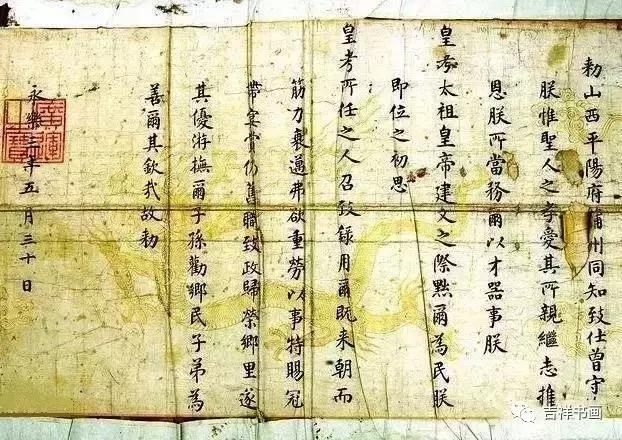 勑山西平陽府蒲州同知致仕曾守
朕惟聖人之孝愛其所親繼志推
恩朕所當務爾以才器事朕
皇考太祖皇帝建文之際黜爾為民朕
即位之初思
皇考所任之人召致錄用爾既来朝而
筋力衰邁弗欲重勞以事特賜冠
帶宴賞仍舊職致政歸榮鄉里遂
其優游撫爾子孫勸鄉民子弟為
善爾其欽哉故勑
永樂三年五月三十日
吉祥书画